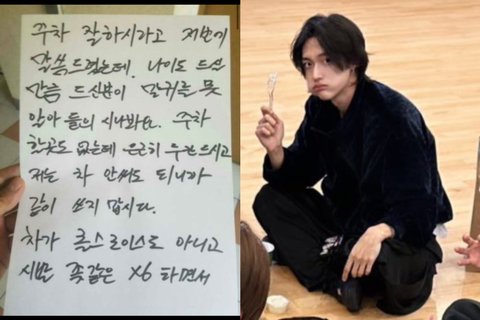 주차 잘하시라고 저번에
말씀드렸는데. 나이도 드신
말씀 드신분이 말귀를 못
알아 들의 시나봐요. 주차
할곳도 없는데 은근히 우겨 드시고
저는 차 안써도 되니까
같이 쓰지 맙시다.
차가 롤스로이스도 아니고
시발 좆같은 X6 타면서